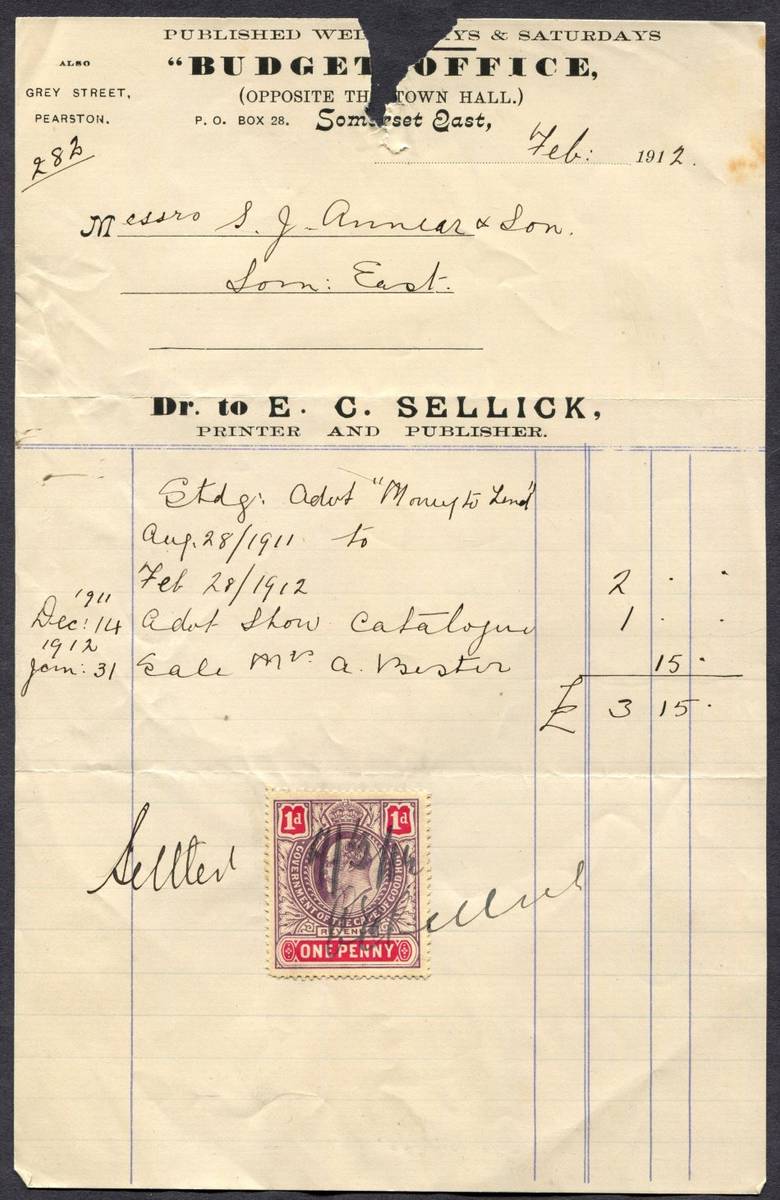 PUBLISHED WED YS & SATURDAYS
ALSO
GREY STREET,
PEARSTON.
"BUDGET OFFICE,
(OPPOSITE TH TOWN HALL.)
P. O. BOX 28. Somerset East,
282
Feb: 1912.
Messrs S. J. Annear & Son.
Som: East.
Dr. to E. C. SELLICK,
PRINTER AND PUBLISHER.
Stdg: Advt "Money to Lend"
Aug. 28/1911 to
Feb 28/1912 2 . .
1911
Dec: 14 Advt Show Catalogue 1 . .
1912
Jan: 31 Sale Mr. A. Bester 15 .
£ 3 15 .
Settled
1d 1d
GOVERNMENT OF THE CAPE OF GOOD HOPE
REVENUE
ONE PENNY
Sellick